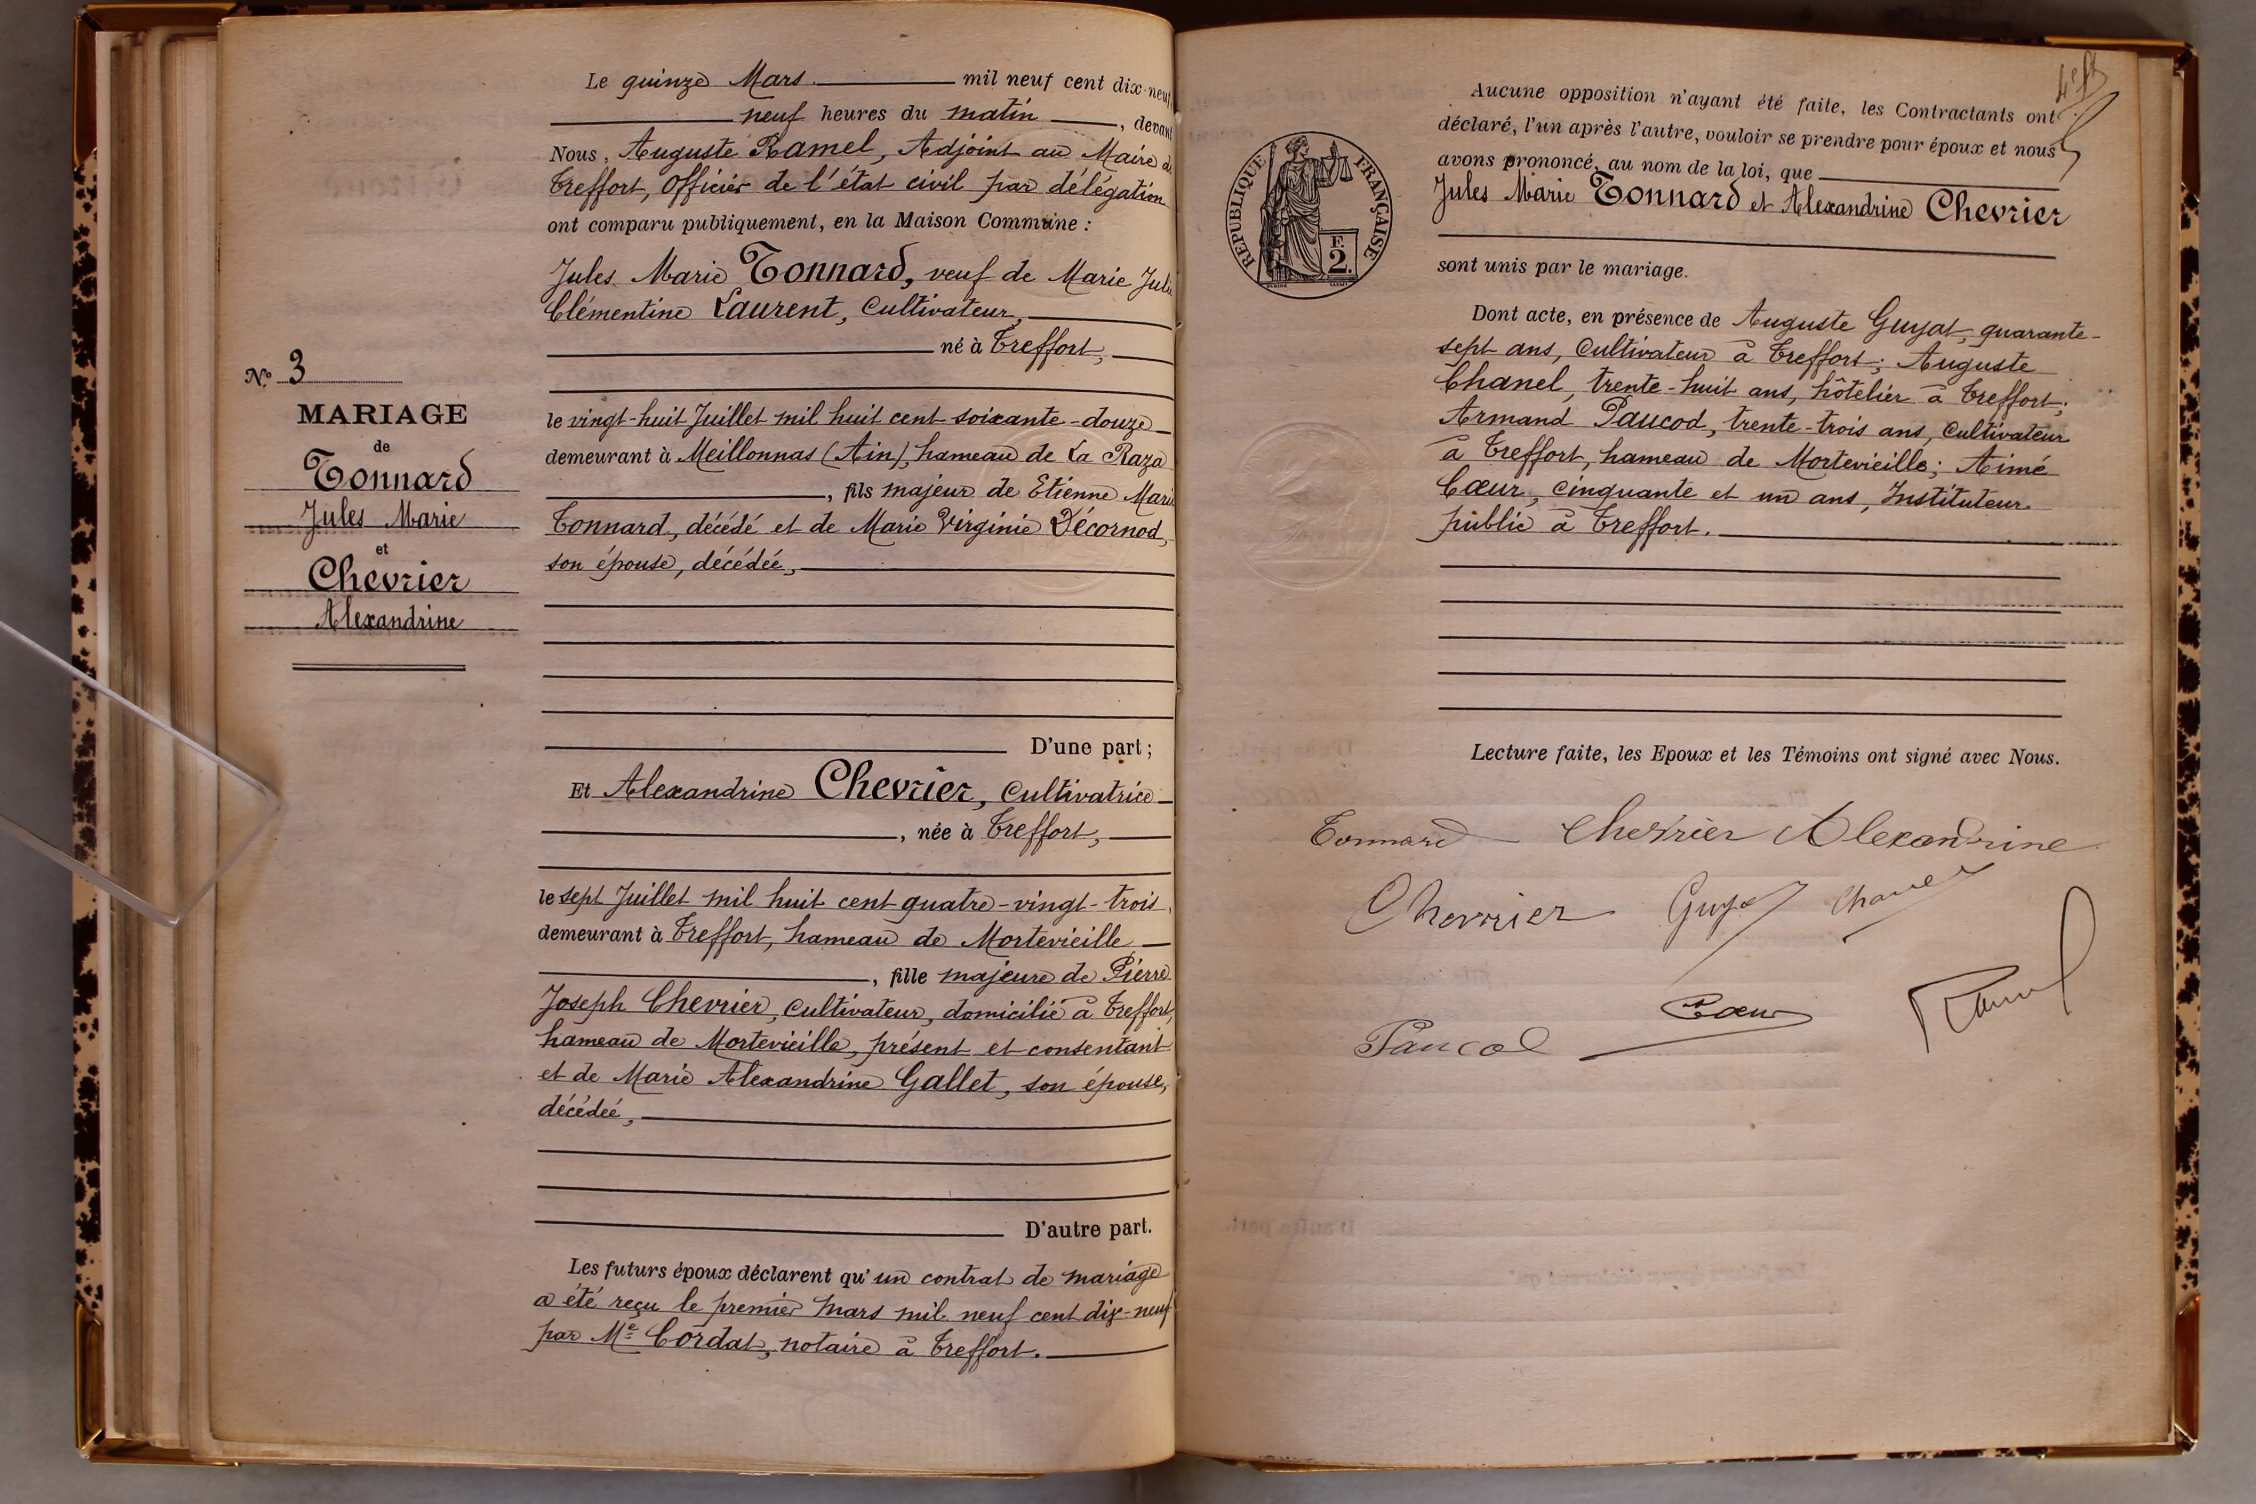 Le quinze Mars mil neuf cent dix-neuf
neuf heures du matin, devant
Nous, Auguste Ramel, Adjoint au Maire de
Treffort, Officier de l'état civil par délégation
ont comparu publiquement, en la Maison Commune :
Jules Marie Tonnard, veuf de Marie Julie
Clémentine Laurent, Cultivateur,
né à Treffort,
le vingt-huit Juillet mil huit cent soixante-douze
demeurant à Meillonnas (Ain), hameau de La Raza
, fils majeur de Etienne Marie
Tonnard, décédé et de Marie Virginie Décornod,
son épouse, décédée,
D'une part ;
Et Alexandrine Chevrier, Cultivatrice
, née à Treffort,
le sept Juillet mil huit cent quatre-vingt-trois,
demeurant à Treffort, hameau de Mortevieille
, fille majeure de Pierre
Joseph Chevrier, Cultivateur, domicilié à Treffort,
hameau de Mortevieille, présent et consentant
et de Marie Alexandrine Gallet, son épouse,
décédée,
D'autre part.
Les futurs époux déclarent qu'un contrat de mariage
a été reçu le premier Mars mil neuf cent dix-neuf
par Me Cordat, notaire à Treffort.
No 3
MARIAGE
de
Tonnard
Jules Marie
et
Chevrier
Alexandrine
Aucune opposition n'ayant été faite, les Contractants ont
déclaré, l'un après l'autre, vouloir se prendre pour époux et nous
avons prononcé, au nom de la loi, que
Jules Marie Tonnard et Alexandrine Chevrier
sont unis par le mariage.
Dont acte, en présence de Auguste Guyat, quarante-
sept ans, Cultivateur à Treffort; Auguste
Chanel, trente-huit ans, hôtelier à Treffort;
Armand Paucod, trente-trois ans, Cultivateur
à Treffort, hameau de Mortevieille; Aimé
Cœur, cinquante et un ans, Instituteur
public à Treffort.
Lecture faite, les Epoux et les Témoins ont signé avec Nous.
RÉPUBLIQUE FRANÇAISE
F.
2.
Tonnard Chevrier Alexandrine
Chevrier Guyat Chanel
Paucod Cœur Ramel